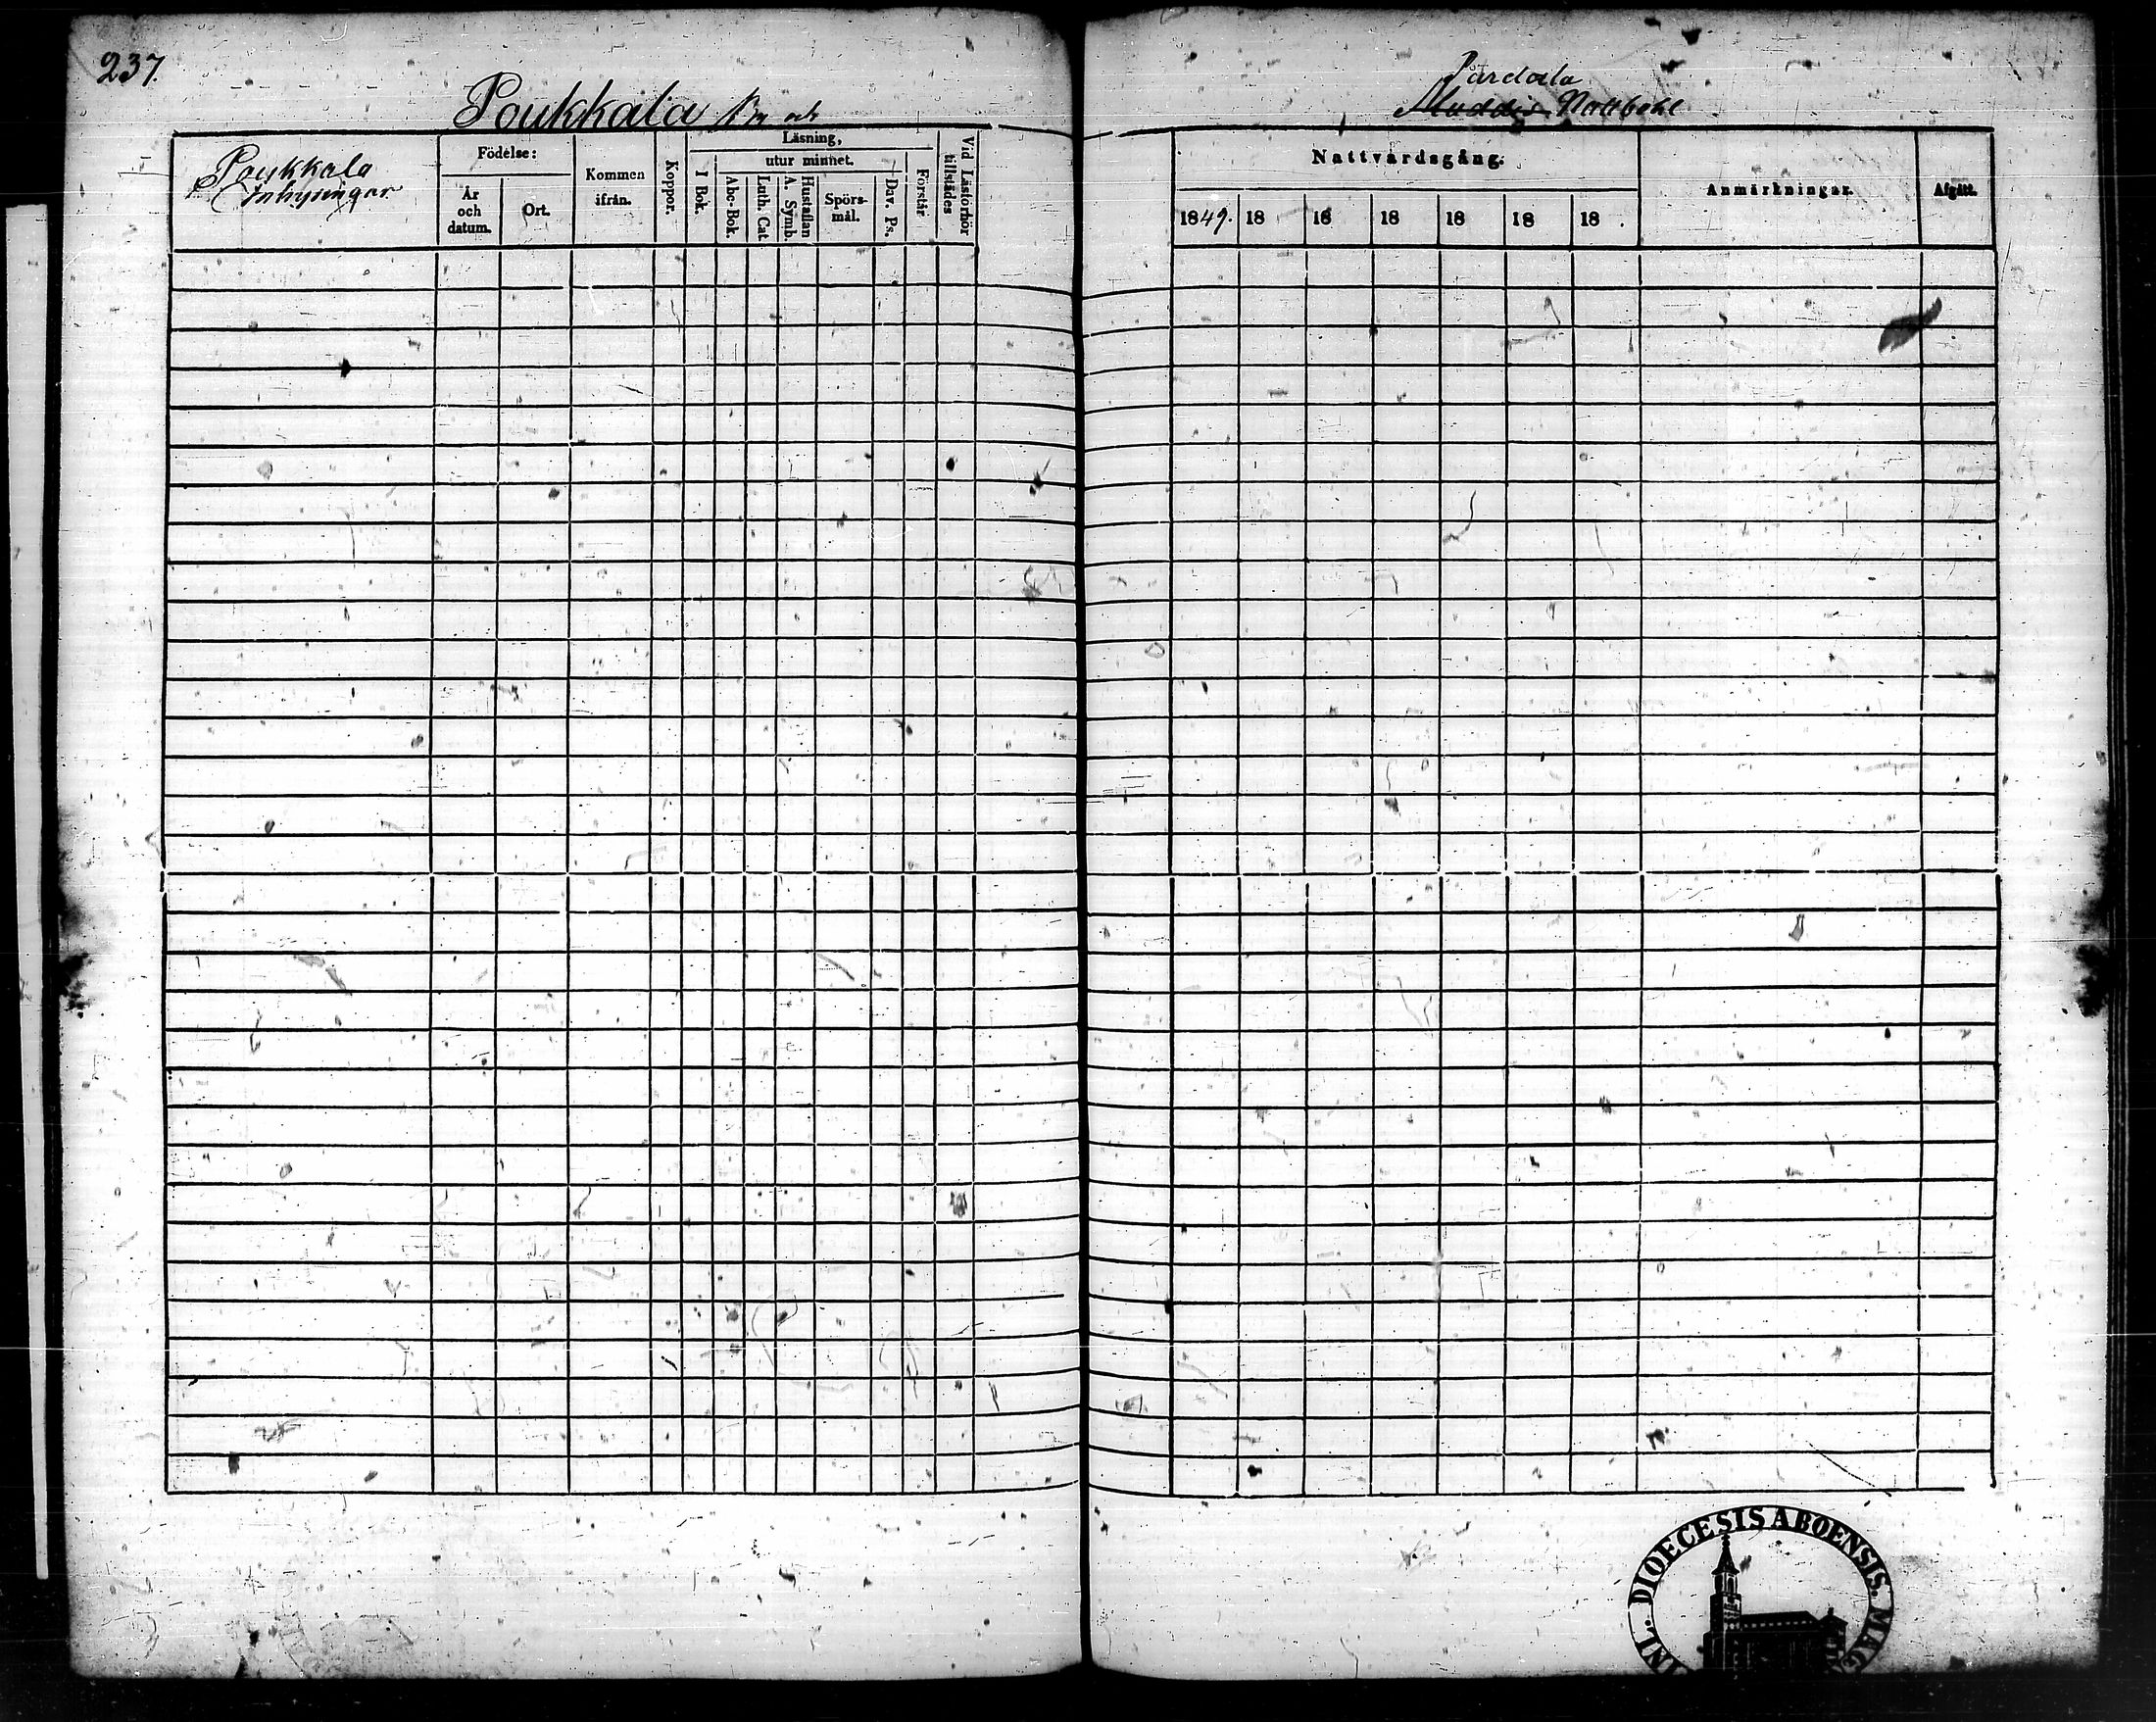 237.
Poukkala By och
Pardala
Nattbohl
Poukkala
Inhysingar
Födelse:
År
och
datum.
Ort.
Kommen
ifrån.
Koppor.
Läsning,
I Bok.
utur minnet.
Abc-Bok.
Luth. Cat.
Hustaflan
A. Symb.
Spörs-
mål.
Dav. Ps.
Förstår.
Vid Läsförhör
tillstädes
Nattvardsgång.
1849. 18 18 18 18 18 18 .
Anmärkningar.
Afgått.
DIOECESIS ABOENSIS.